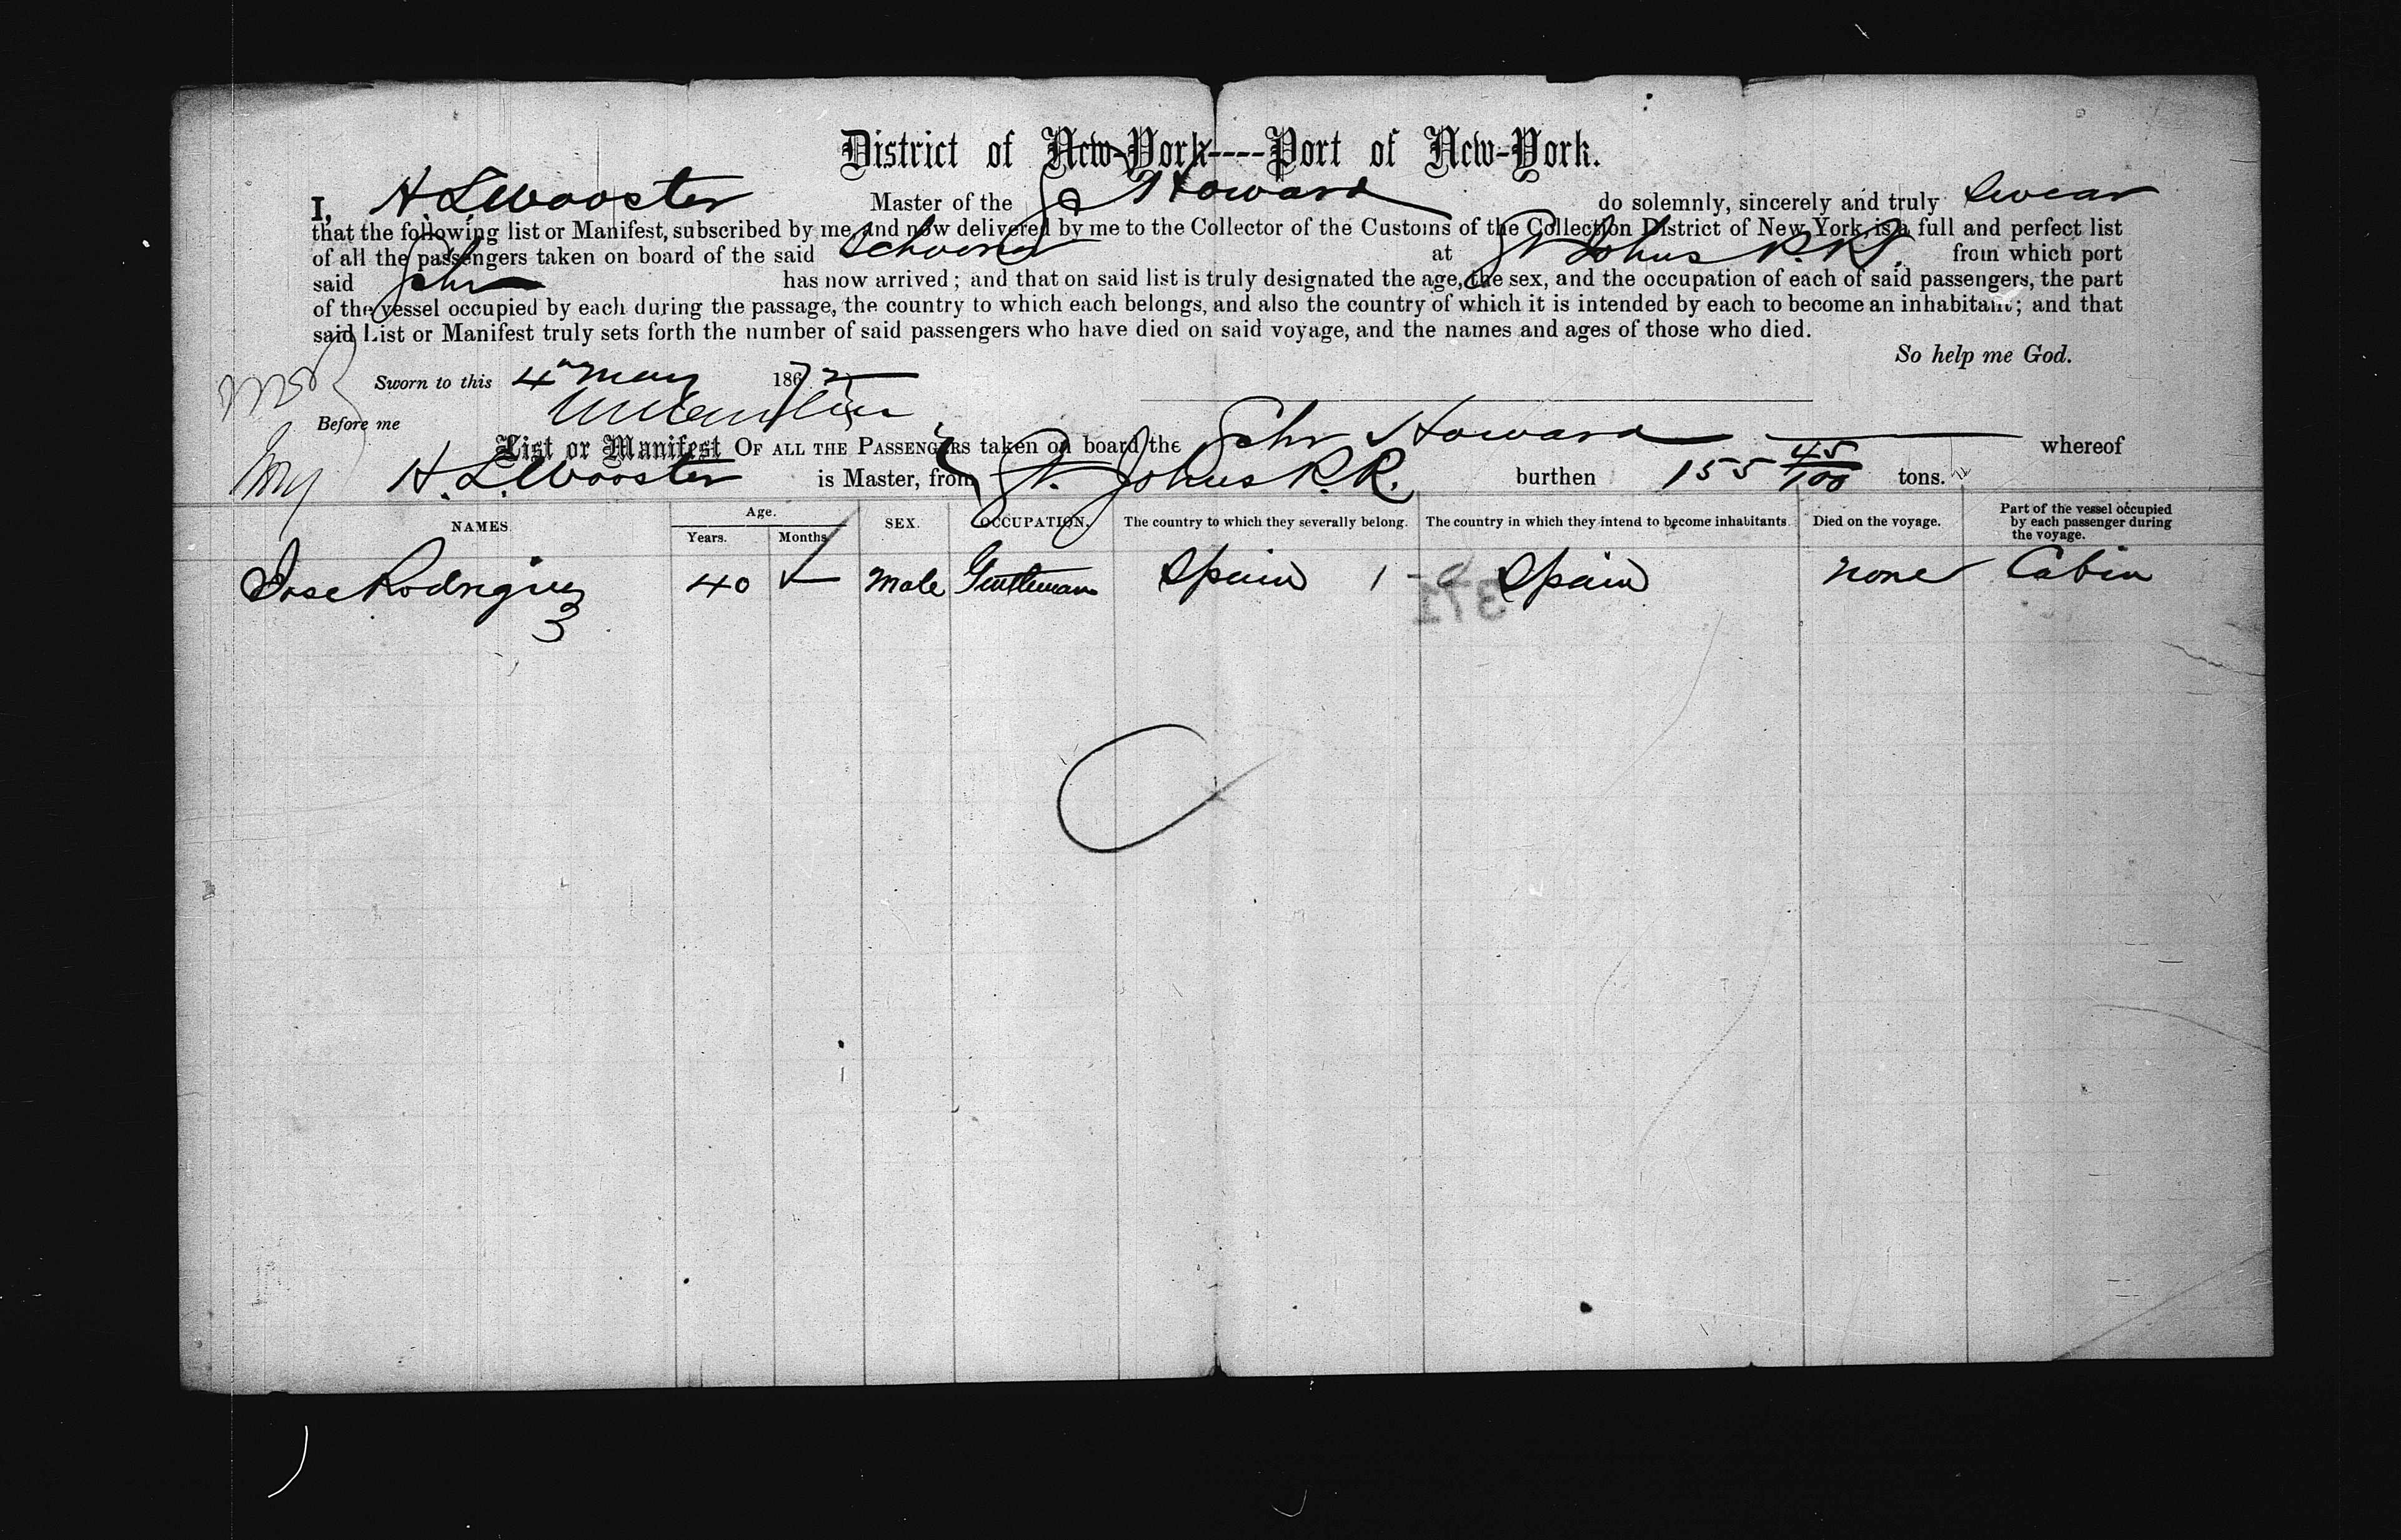 District of New-York----Port of New-York.
I, H. L. Wooster Master of the Howard do solemnly, sincerely and truly swear
that the following list or Manifest, subscribed by me and now delivered by me to the Collector of the Customs of the Collection District of New York, is a full and perfect list
of all the passengers taken on board of the said Schooner at St Johns P. R. from which port
said Schr has now arrived; and that on said list is truly designated the age, the sex, and the occupation of each of said passengers, the part
of the vessel occupied by each during the passage, the country to which each belongs, and also the country of which it is intended by each to become an inhabitant; and that
said List or Manifest truly sets forth the number of said passengers who have died on said voyage, and the names and ages of those who died.
So help me God.
Sworn to this 4 May 1872
Before me
List or Manifest OF ALL THE PASSENGERS taken on board the Schr Howard whereof
H. L. Wooster is Master, from St. Johns P. R. burthen 155 45/100 tons.
NAMES. Age. Years. Months. SEX. OCCUPATION. The country to which they severally belong. The country in which they intend to become inhabitants. Died on the voyage. Part of the vessel occupied by each passenger during the voyage.
Jose Rodriguez 40 Male Gentleman Spain 1 Spain none Cabin
3